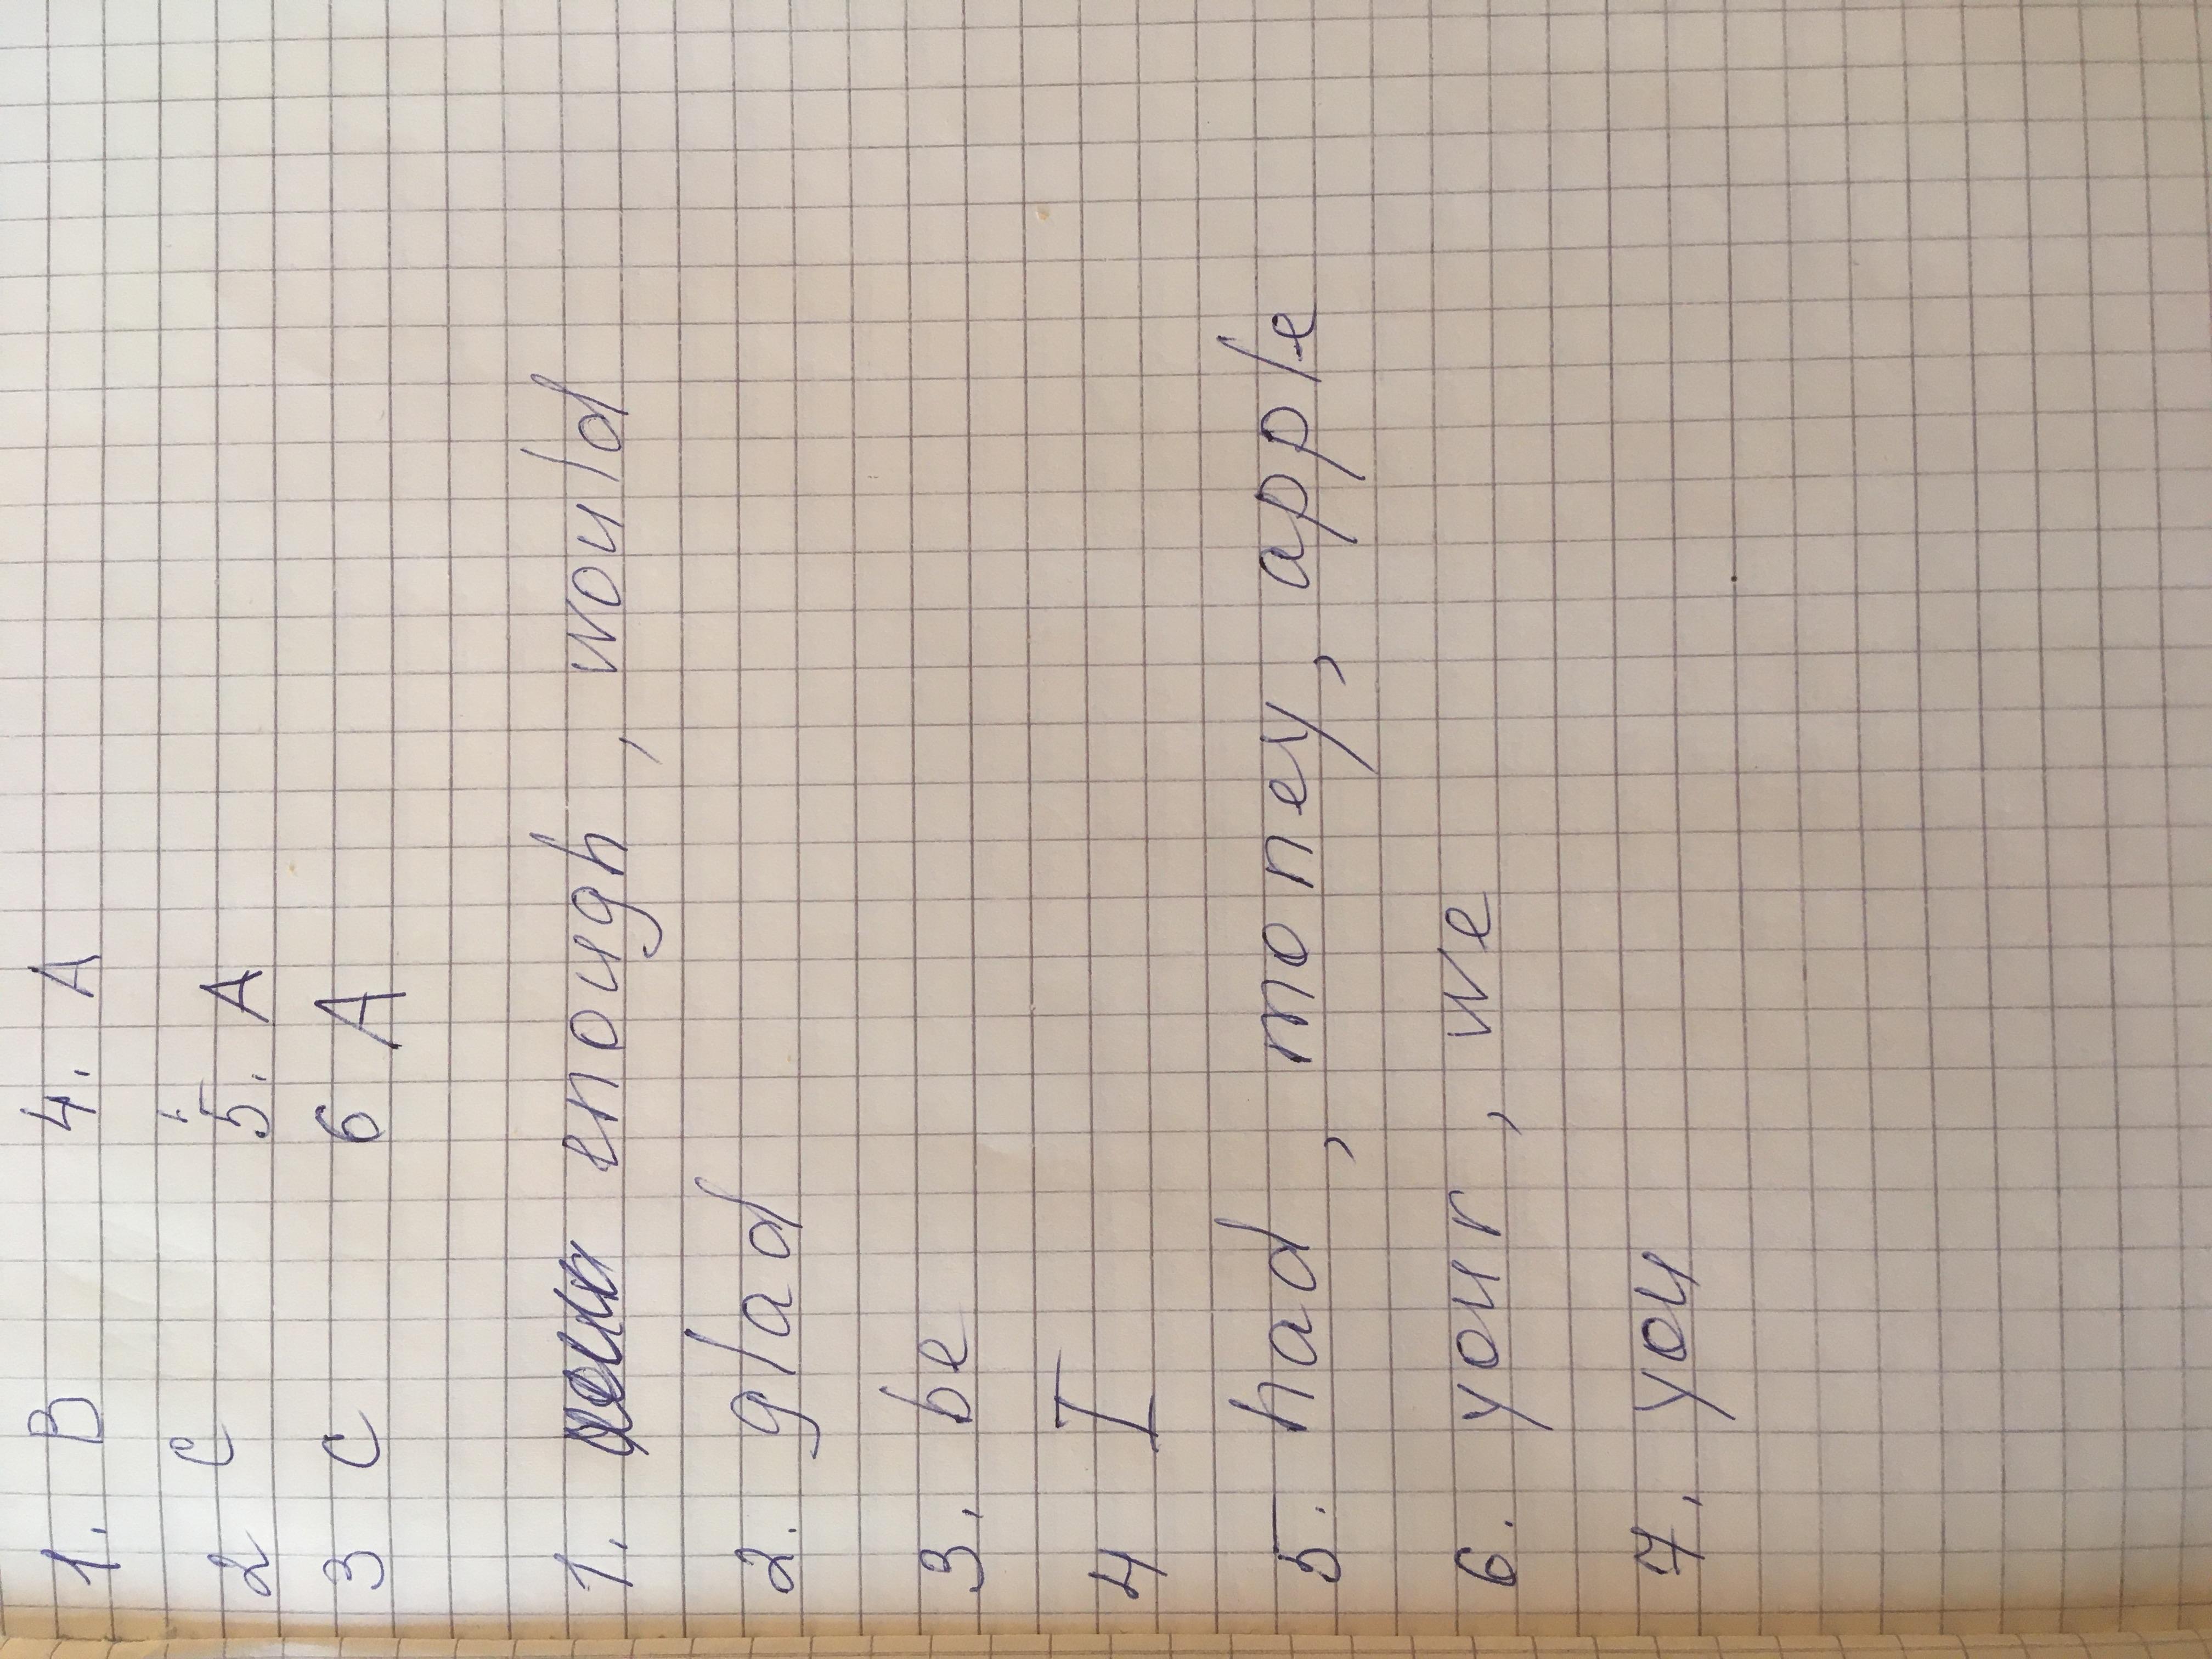 1. B 4. A
2 C 5. A
3 C 6 A
1. enough, would
2. glad
3. be
4 I
5. had, money, apple
6. your, we
7. you